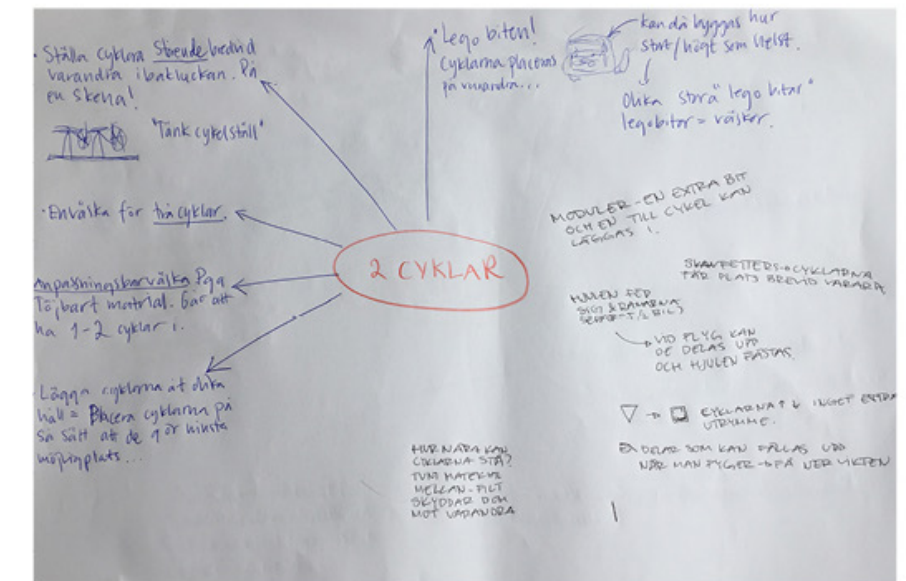 · Ställa cyklarna Stående bredvid
varandra i bakluckan. På
en skena!
"Tänk cykelställ"
· En väska för två cyklar.
Anpassningsbar väska Pga
Töjbart matrial. Går att
ha 1-2 cyklar i.
· Lägga cyklarna åt olika
håll = Placera cyklarna på
så sätt att de gör minsta
möjliga plats...
2 CYKLAR
· Lego biten!
Cyklarna placeras
på varandra...
kan då byggas hur
stort/högt som helst.
Olika stora "lego bitar"
legobitar = väskor.
MODULER - EN EXTRA BIT
OCH EN TILL CYKEL KAN
LÄGGAS I.
CYKLARNA
TAR PLATS BREVID VARARA
HJULEN FÖR
SIG & RAMARNA
BIL
VID FLYG KAN
DE DELAS UPP
OCH HJULEN FÄSTAS.
CYKLARNA ↑ ↓ INGET EXTRA
UTRYMME.
DELAR SOM KAN FÄLLAS UPP
NÄR MAN FLYGER → PÅ NER VIKTEN
HUR NÄRA KAN
CYKLARNA STÅ?
TUNT MATERIAL
MELLAN - FILT
SKYDDAR DOM
MOT VARANDRA